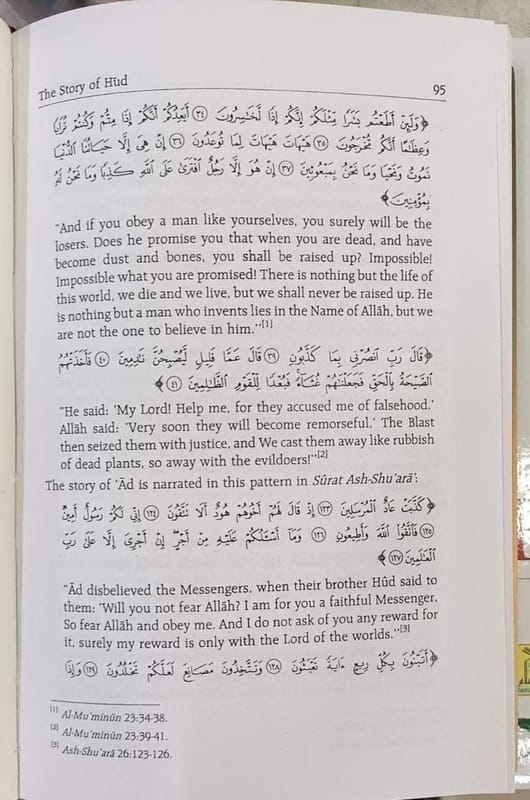 The Story of Hūd
95
﴿وَلَئِنْ أَطَعْتُم بَشَرًا مِّثْلَكُمْ إِنَّكُمْ إِذًا لَّخَاسِرُونَ ﴿٣٤﴾ أَيَعِدُكُمْ أَنَّكُمْ إِذَا مِتُّمْ وَكُنتُمْ تُرَابًا
وَعِظَامًا أَنَّكُم مُّخْرَجُونَ ﴿٣٥﴾ هَيْهَاتَ هَيْهَاتَ لِمَا تُوعَدُونَ ﴿٣٦﴾ إِنْ هِيَ إِلَّا حَيَاتُنَا الدُّنْيَا
نَمُوتُ وَنَحْيَا وَمَا نَحْنُ بِمَبْعُوثِينَ ﴿٣٧﴾ إِنْ هُوَ إِلَّا رَجُلٌ افْتَرَىٰ عَلَى اللَّهِ كَذِبًا وَمَا نَحْنُ لَهُ
بِمُؤْمِنِينَ﴾
"And if you obey a man like yourselves, you surely will be the
losers. Does he promise you that when you are dead, and have
become dust and bones, you shall be raised up? Impossible!
Impossible what you are promised! There is nothing but the life of
this world, we die and we live, but we shall never be raised up. He
is nothing but a man who invents lies in the Name of Allāh, but we
are not the one to believe in him."[1]
﴿قَالَ رَبِّ انصُرْنِي بِمَا كَذَّبُونِ ﴿٣٩﴾ قَالَ عَمَّا قَلِيلٍ لَّيُصْبِحُنَّ نَادِمِينَ ﴿٤٠﴾ فَأَخَذَتْهُمُ
الصَّيْحَةُ بِالْحَقِّ فَجَعَلْنَاهُمْ غُثَاءً فَبُعْدًا لِّلْقَوْمِ الظَّالِمِينَ ﴿٤١﴾﴾
"He said: 'My Lord! Help me, for they accused me of falsehood.'
Allāh said: 'Very soon they will become remorseful.' The Blast
then seized them with justice, and We cast them away like rubbish
of dead plants, so away with the evildoers!"[2]
The story of 'Ād is narrated in this pattern in Sūrat Ash-Shu'arā':
﴿كَذَّبَتْ عَادٌ الْمُرْسَلِينَ ﴿١٢٣﴾ إِذْ قَالَ لَهُمْ أَخُوهُمْ هُودٌ أَلَا تَتَّقُونَ ﴿١٢٤﴾ إِنِّي لَكُمْ رَسُولٌ أَمِينٌ
﴿١٢٥﴾ فَاتَّقُوا اللَّهَ وَأَطِيعُونِ ﴿١٢٦﴾ وَمَا أَسْئَلُكُمْ عَلَيْهِ مِنْ أَجْرٍ إِنْ أَجْرِيَ إِلَّا عَلَىٰ رَبِّ
الْعَالَمِينَ ﴿١٢٧﴾﴾
"Ād disbelieved the Messengers, when their brother Hūd said to
them: 'Will you not fear Allāh? I am for you a faithful Messenger.
So fear Allāh and obey me. And I do not ask of you any reward for
it, surely my reward is only with the Lord of the worlds.'"[3]
﴿أَتَبْنُونَ بِكُلِّ رِيعٍ ءَايَةً تَعْبَثُونَ ﴿١٢٨﴾ وَتَتَّخِذُونَ مَصَانِعَ لَعَلَّكُمْ تَخْلُدُونَ ﴿١٢٩﴾ وَإِذَا
[1] Al-Mu'minūn 23:34-38.
[2] Al-Mu'minūn 23:39-41.
[3] Ash-Shu'arā 26:123-126.